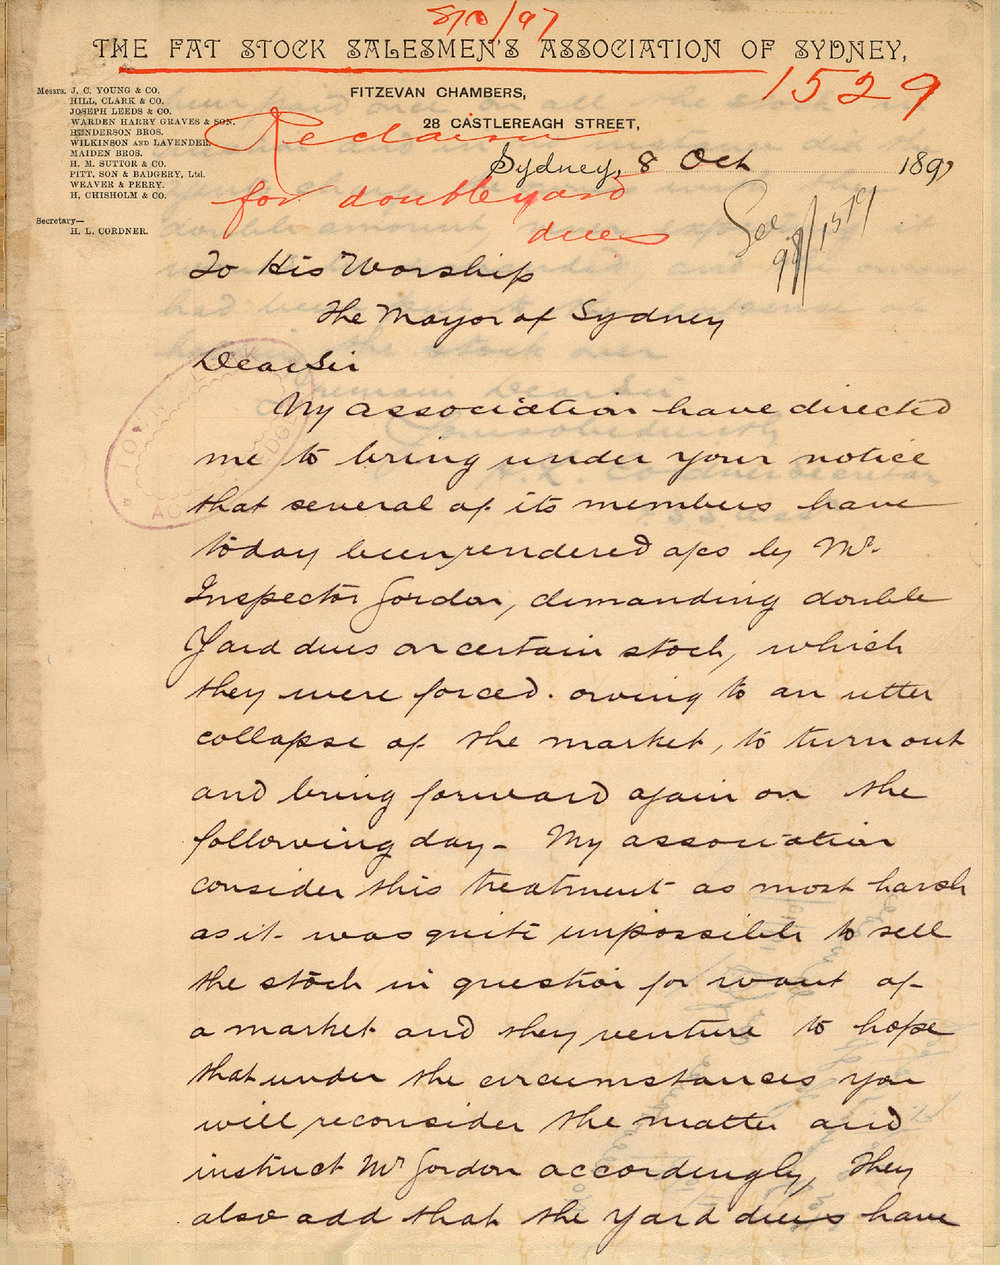 8/10/97
THE FAT STOCK SALESMEN'S ASSOCIATION OF SYDNEY,
1529
Messrs. J. C. YOUNG & CO.
HILL, CLARK & CO.
JOSEPH LEEDS & CO.
WARDEN HARRY GRAVES & SON.
HENDERSON BROS.
WILKINSON AND LAVENDER.
MAIDEN BROS.
H. M. SUTTOR & CO.
PITT, SON & BADGERY, Ltd.
WEAVER & PERRY.
H. CHISHOLM & CO.
Secretary—
H. L. CORDNER.
FITZEVAN CHAMBERS,
28 CASTLEREAGH STREET,
Sydney, 8 Oct 1897
Reclaim
for double yard
dues
See
98/1519
To His Worship
The Mayor of Sydney
Dear Sir
My association have directed
me to bring under your notice
that several of its members have
today been rendered a/cs by Mr.
Inspector Gordon, demanding double
Yard dues on certain stock, which
they were forced. owing to an utter
collapse of the market, to turn out
and bring forward again on the
following day - My association
consider this treatment as most harsh
as it was quite impossible to sell
the stock in question for want of
a market and they venture to hope
that under the circumstances you
will reconsider the matter and
instruct Mr Gordon accordingly, They
also add that the Yard dues have
TOWN